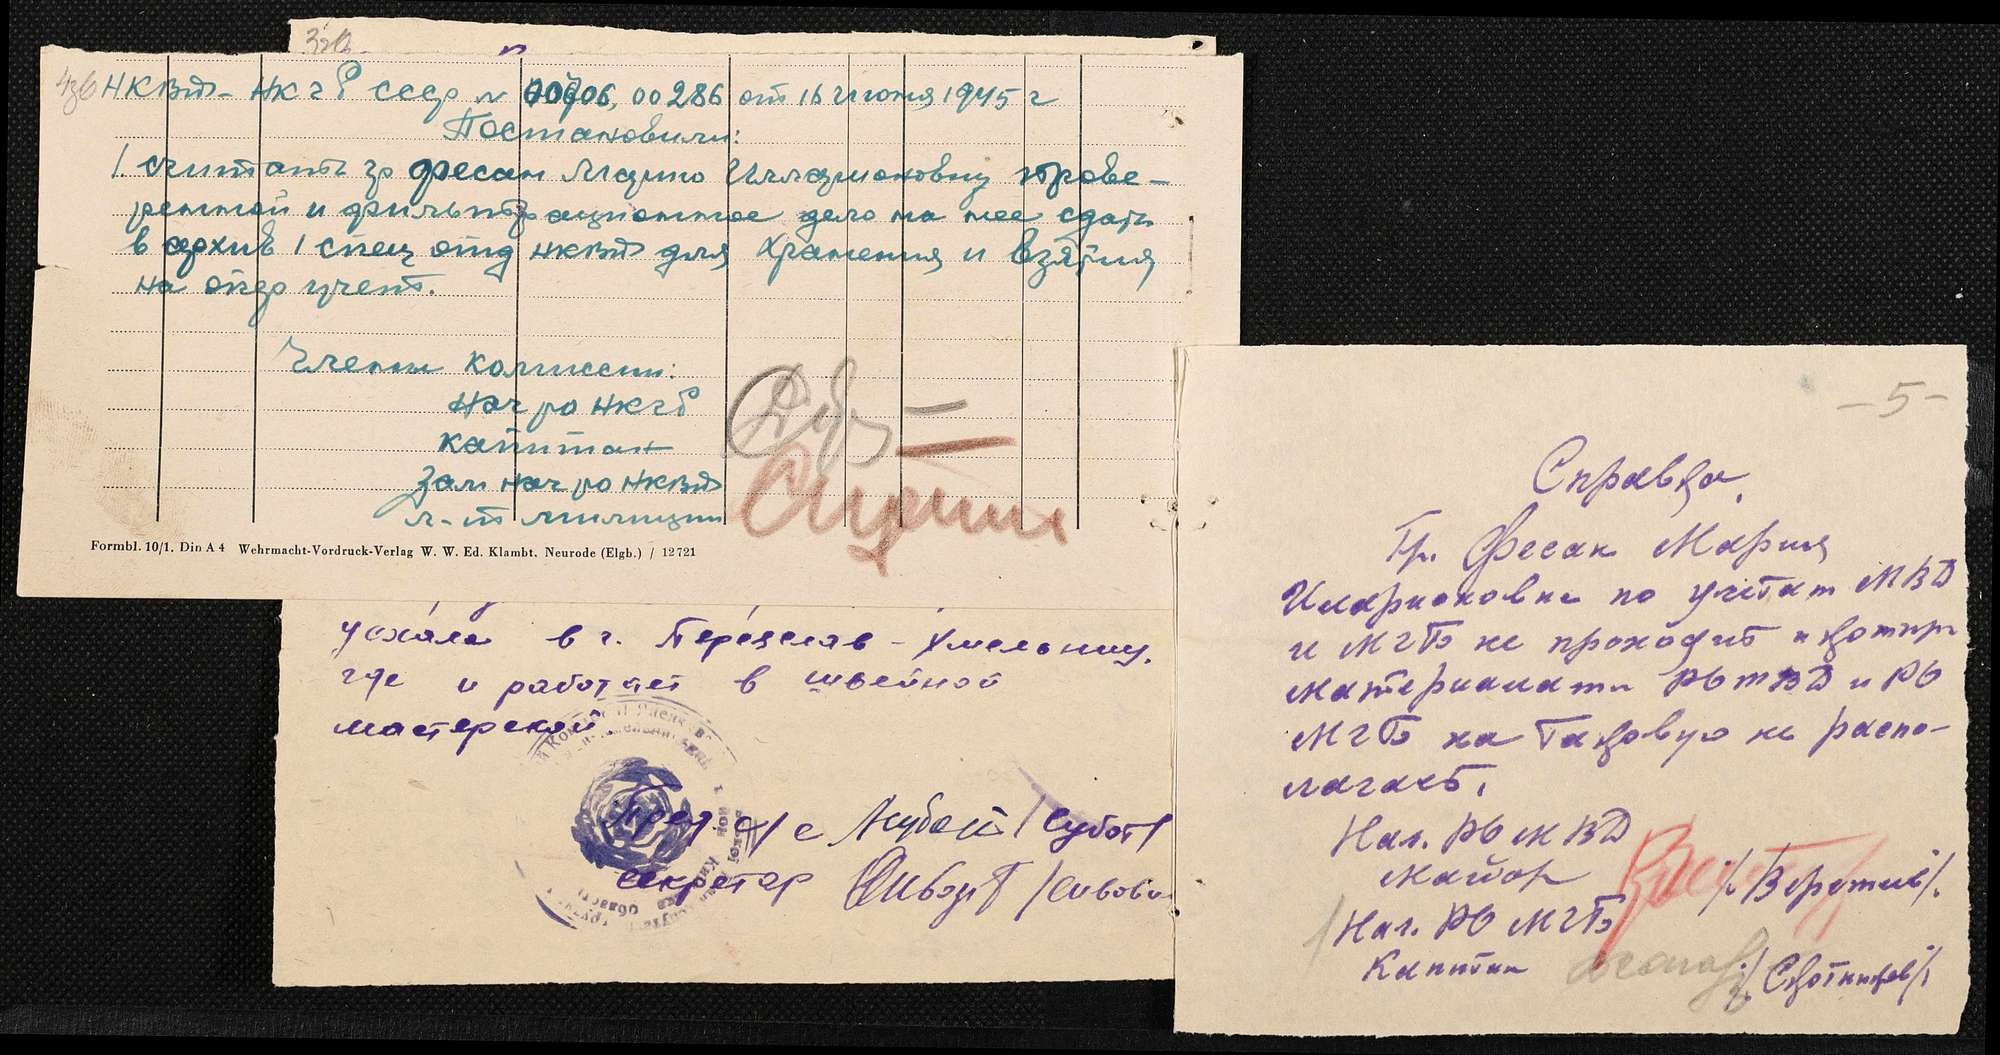 НКВД - НКГБ СССР № 00706, 00286 от 16 июня 1945 г
Постановили:
1 считать гр Фесан Марию Илларионовну прове-
ренной и фильтрационное дело на нее сдать
в архив 1 спец отд НКВД для хранения и взятия
на опер учет.
Члены комиссии:
Нач ро НКГБ
капитан
Зам нач ро НКВД
л-т милиции
Formbl. 10/1. Din A 4 Wehrmacht-Vordruck-Verlag W. W. Ed. Klambt. Neurode (Elgb.) / 12721
уехала в г. Переяслав-Хмельниц.
где и работает в швейной
мастерской
Пред. с/с /Субот/
секретарь
-5-
Справка
Гр. Фесан Мария
Иларионовна по учетам МВД
и МГБ не проходит и компр
материалами РО МВД и РО
МГБ на таковую не распо-
лагает.
Нач. РО МВД
майор
Нач. РО МГБ
Капитан